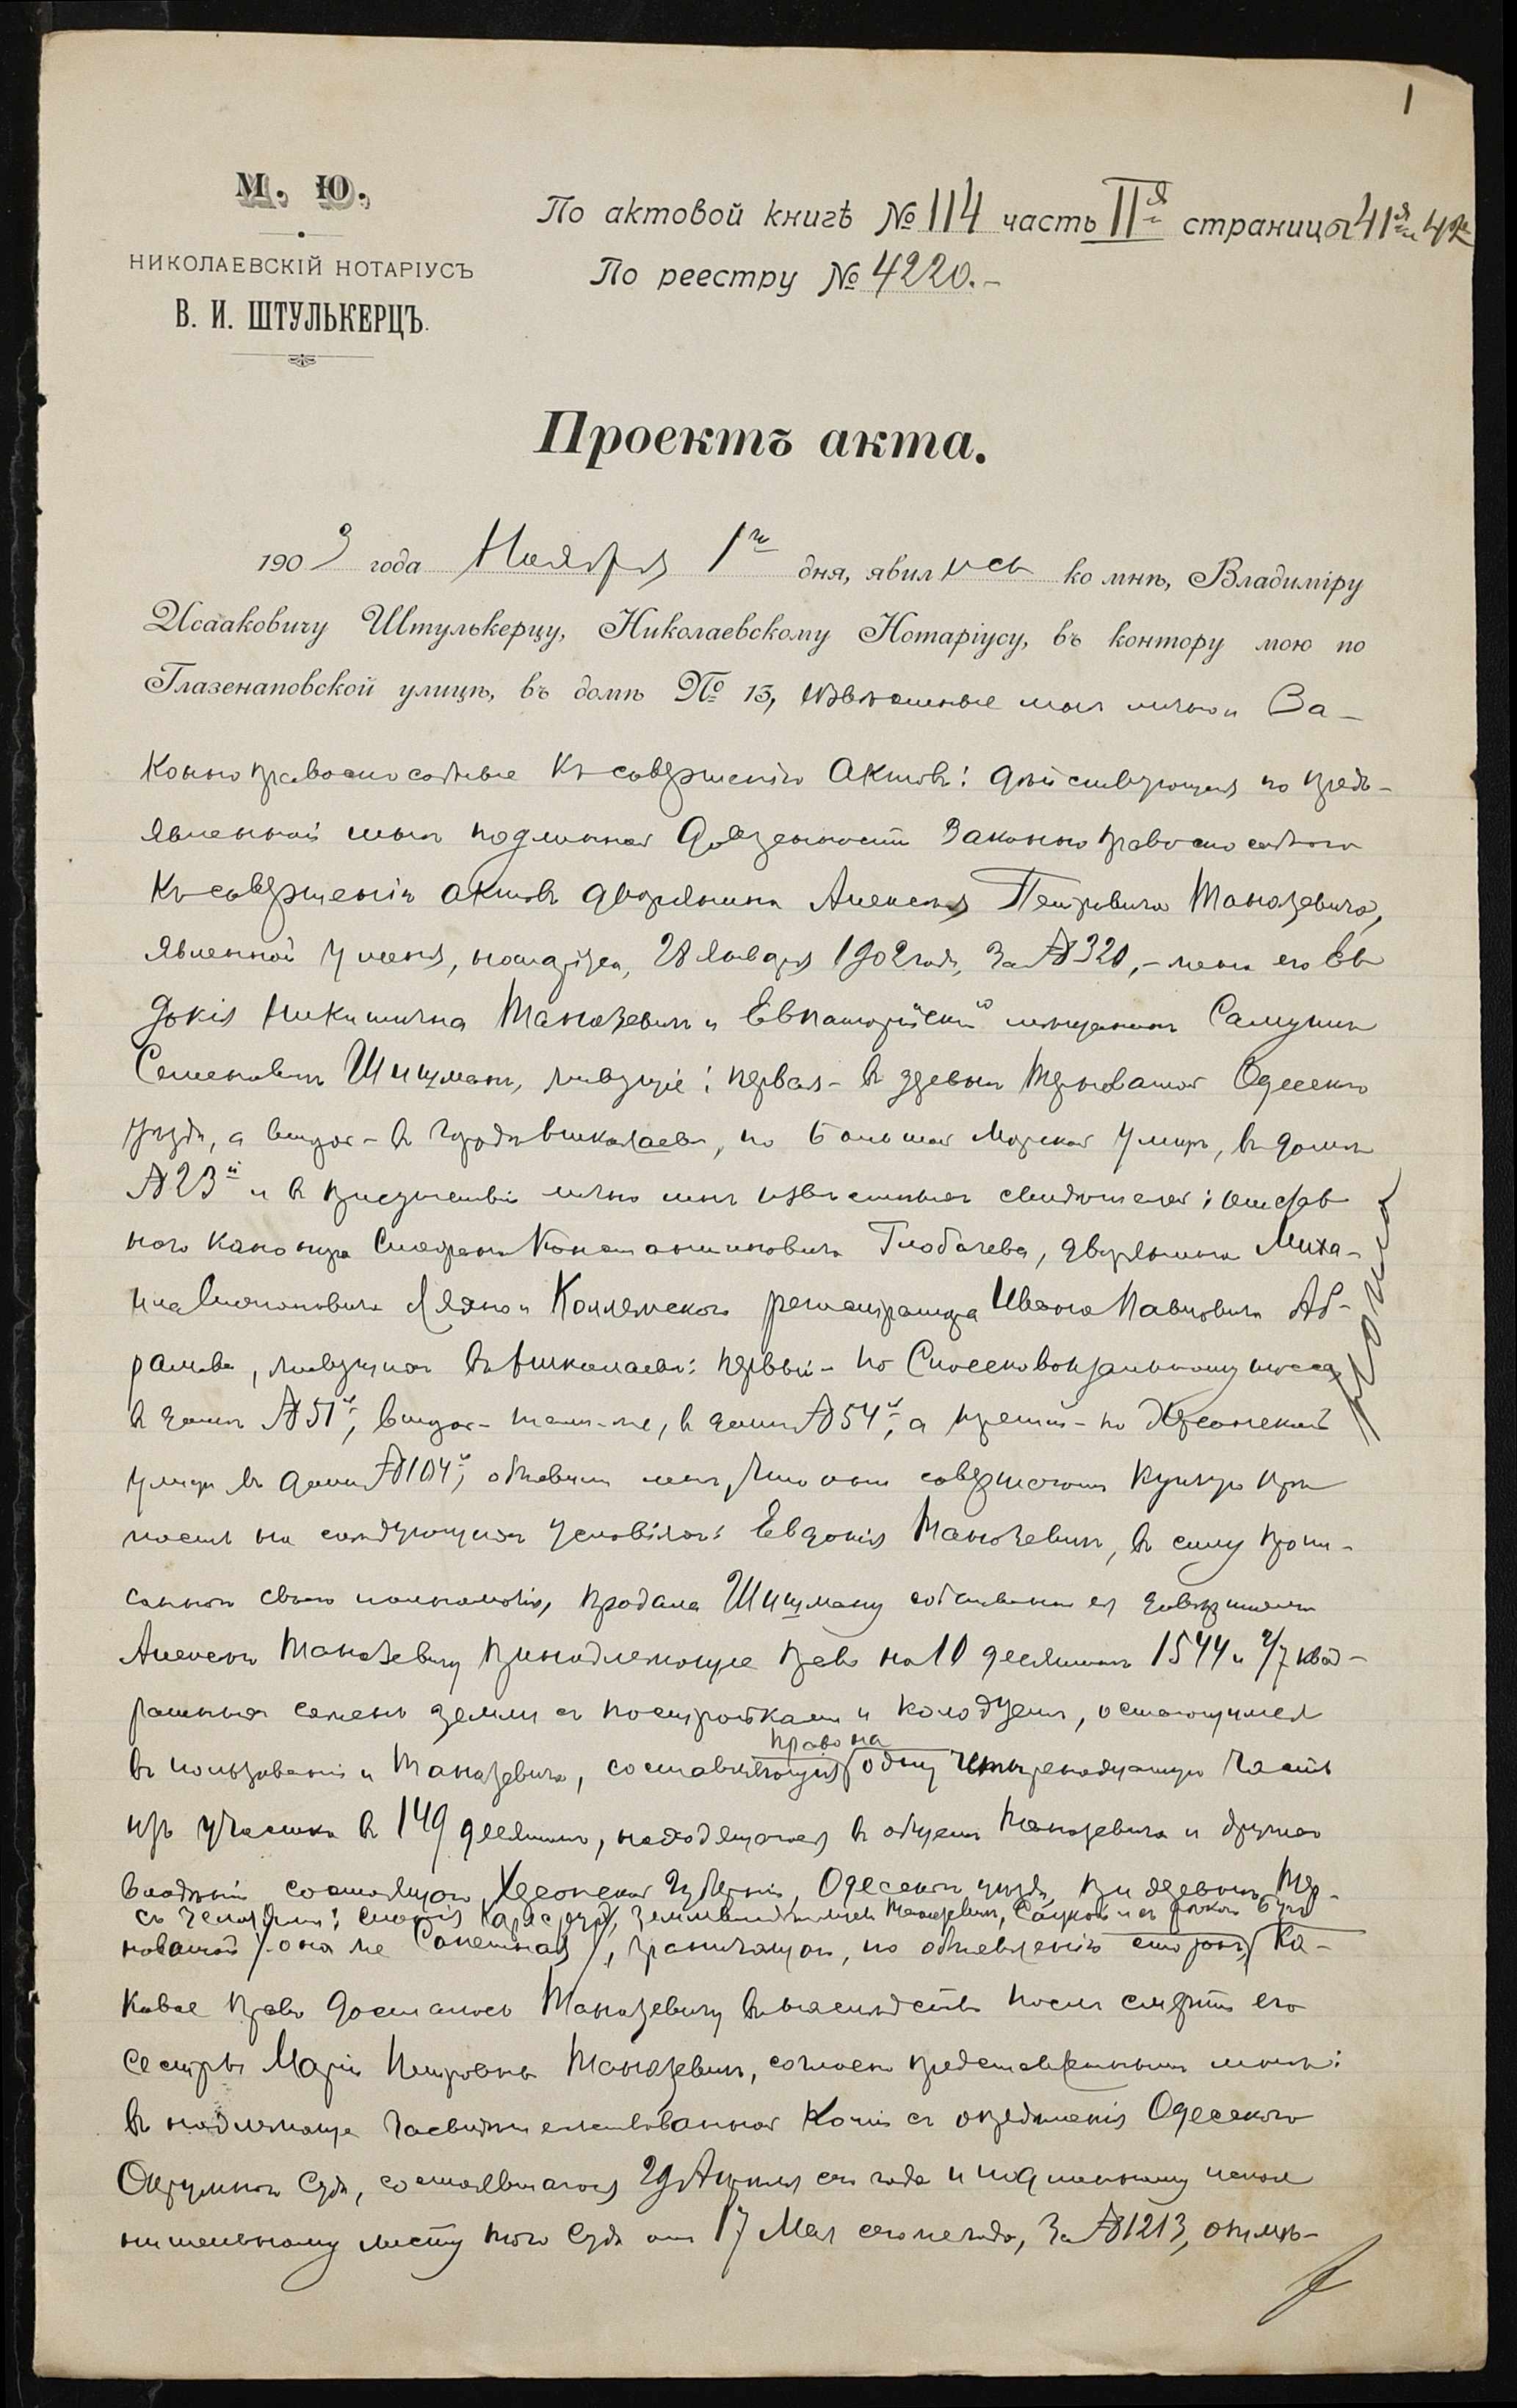 1
М. Ю.
НИКОЛАЕВСКІЙ НОТАРІУСЪ
В. И. ШТУЛЬКЕРЦЪ.
По актовой книгѣ № 114 часть IIя страницы 41я и 42
По реестру № 4220.-
Проектъ акта.
1903 года Ноября 1го дня, явились ко мнѣ, Владиміру
Исааковичу Штулькерцу, Николаевскому Нотаріусу, въ контору мою по
Глазенаповской улицѣ, въ домѣ № 13, извѣстные мнѣ лично и За-
конно правоспособные къ совершенію актовъ: дѣйствующая по предъ-
явленной мнѣ подлинной довѣренности законно правоспособнаго
къ совершенію актовъ дворянина Алексея Петровича Таназевича,
явленной у меня, нотаріуса, 28 Января 1902 года, за № 320, - жена его Ев
докія Никитична Таназевичъ и Евпаторійскій мѣщанинъ Самуилъ
Семеновичъ Шишманъ, живущіе: первая - въ деревнѣ Терноватой Одесскаго
уѣзда, а второй - въ городѣ Николаевѣ, по Большой Морской улицѣ, въ домѣ
№ 23й и въ присутствіи лично мнѣ извѣстныхъ свидѣтелей: отстав
ного канонира Константиновича Глобачева, дворянина Миха-
ила и Коллежскаго регистратора Ивана Павловича Аб-
рамова, живущихъ въ Николаевѣ: первый - по шоссе
въ домѣ № 51й, второй - тамъ-же, въ домѣ № 54й, а третій - по Херсонской
улицѣ въ домѣ № 104й, объявили мнѣ, что они совершаютъ купчую крѣ
пость на слѣдующихъ условіяхъ: Евдокія Таназевичъ, въ силу пропи-
саннаго своего полномочія, продала Шишману собственно ея довѣрителю
Алексею Таназевичу принадлежащее право на 10 десятинъ 1544 и 2/7 квад-
ратныхъ сажень земли съ постройками и колодцемъ, остающимися
право на
въ пользованіи Таназевича, составляющія одну четырнадцатую часть
изъ участка въ 149 десятинъ, находящагося въ общемъ Таназевича и другихъ
владѣніи состоящаго Херсонской Губерніи, Одесскаго уѣзда, при деревнѣ Тер-
съ землями: землевладѣльцевъ Таназевичъ, и съ рѣкою Бугъ
новатой / она же /, граничащаго, по объявленію сторонъ, Ка-
ковое право досталось Таназевичу въ наслѣдство послѣ смерти его
сестры Маріи Петровны Таназевичъ, согласно представленнымъ мнѣ:
въ надлежаще засвидѣтельствованной копіи съ опредѣленія Одесскаго
Окружнаго Суда, состоявшагося 29 Апрѣля сего года и подлинному испол
нительному листу того Суда отъ 17 Мая сего же года, за № 1213, отмѣ-
Копія